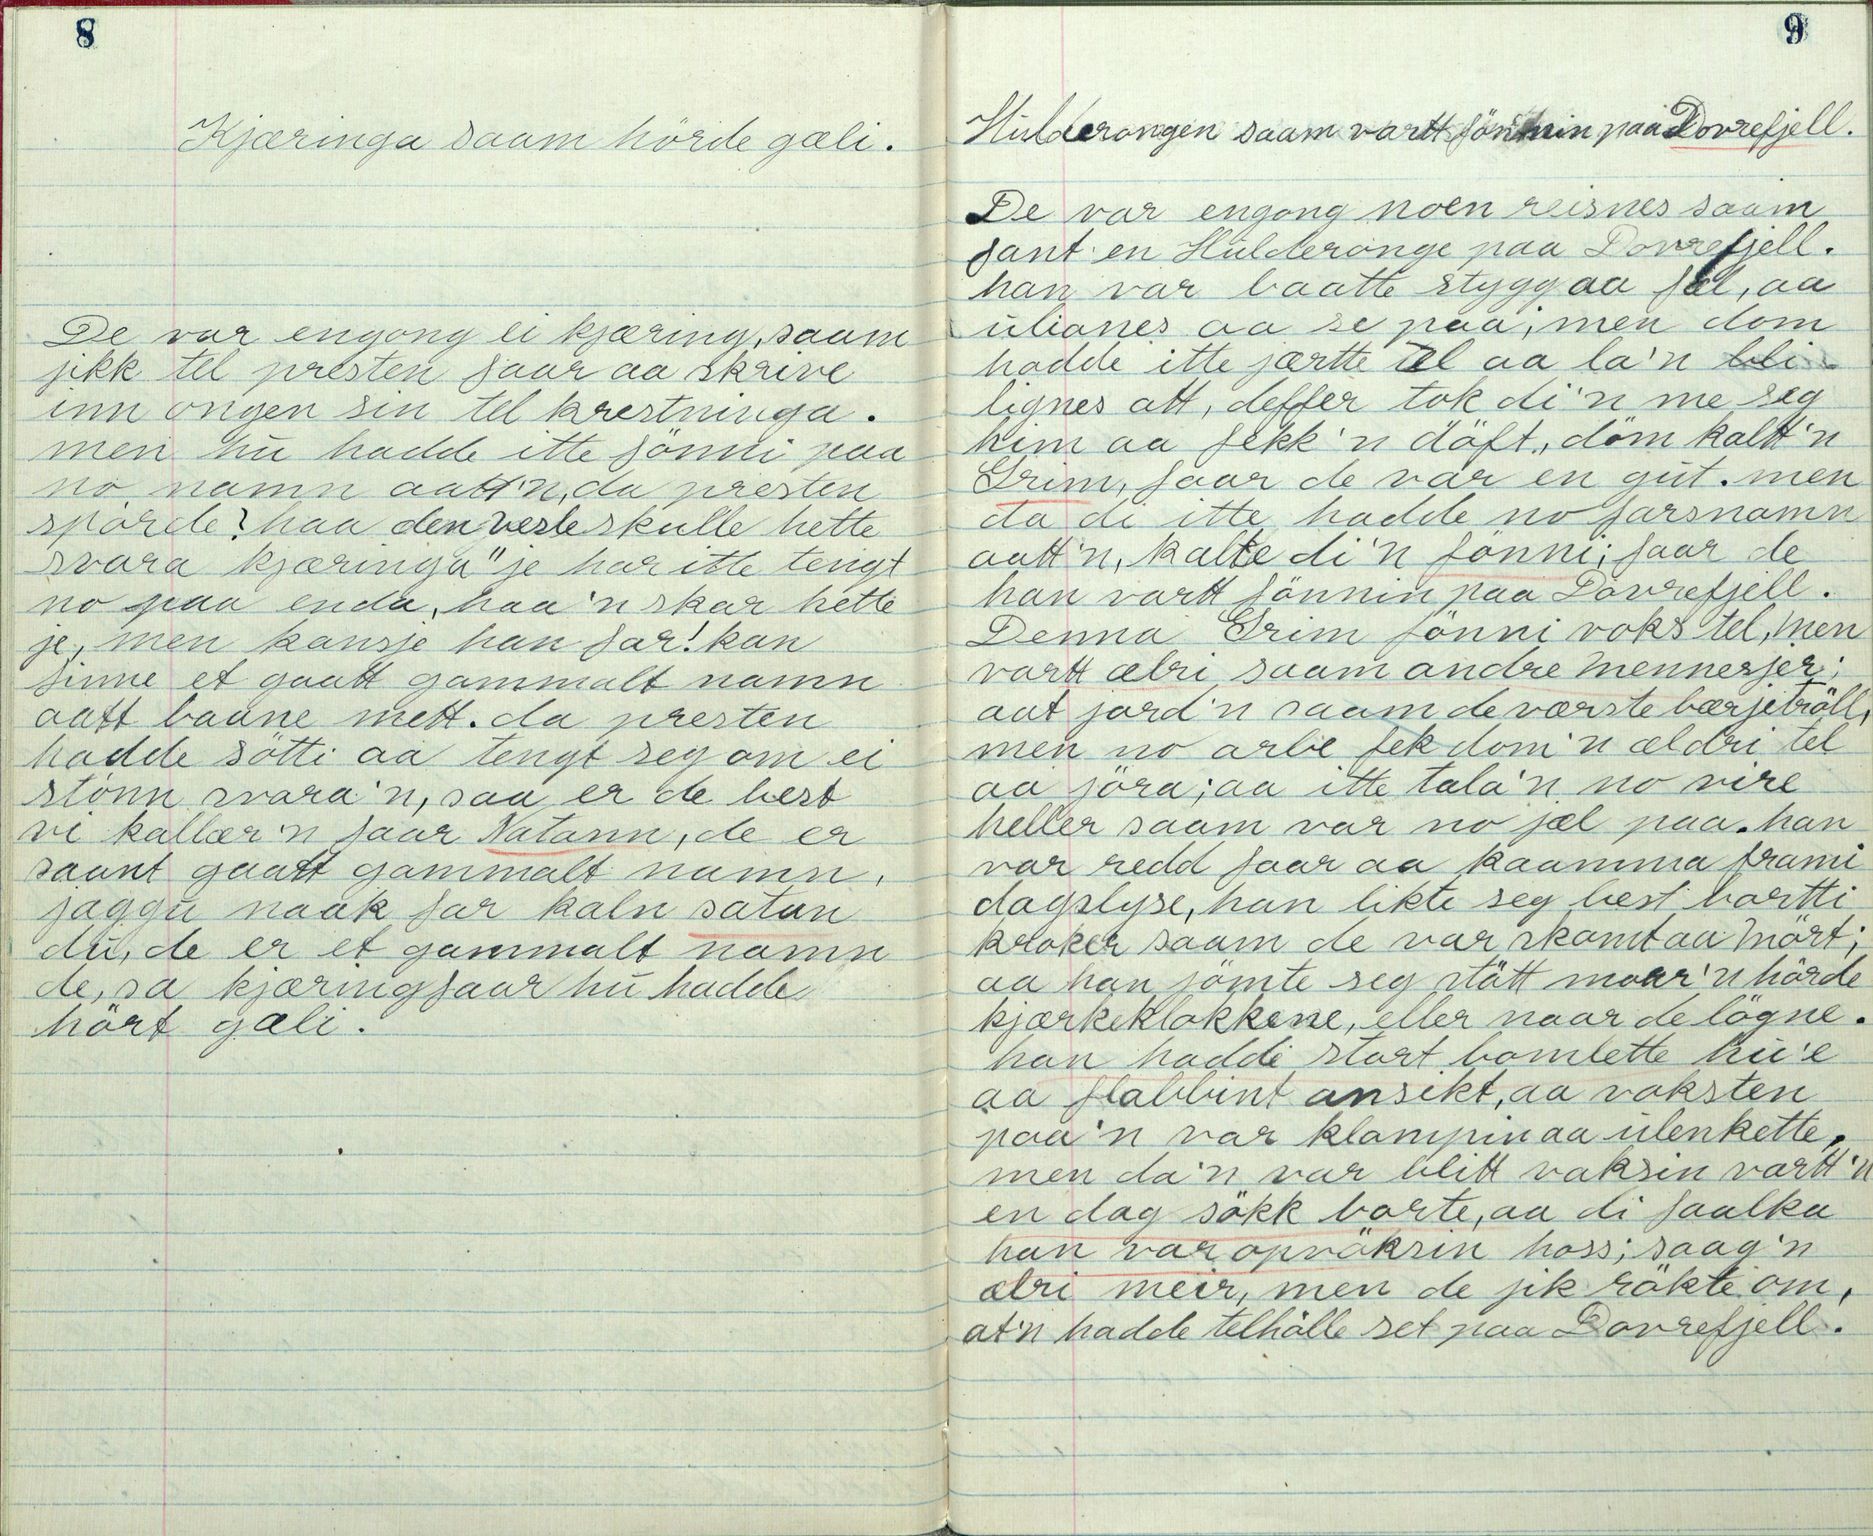 8
Kjæringa saam hörde gæli.
De var engong ei kjæring, saam
jikk tel presten faar aa skrive
inn ongen sin tel krestninga.
men hu hadde itte fönni paa
no namn aatt'n, da presten
spörde? haa den vesle skulle hette
svara kjæringa "je har itte tengt
no paa enda, haa'n skar hette
je, men kansje han far! kan
finne et gaatt gammalt namn
aatt baane mett. da presten
hadde sötti aa tengt seg om ei
stönn svara'n, saa er de best
vi kallær'n faar Natann, de er
saant gaatt gammalt namn,
jaggu naak far kaln satan
du, de er et gammalt namn
de, sa kjæring faar hu hadde
hört gæli.
9
Hulderongen saam vartt fönnin paa Dovrefjell.
De var engong noen reisnes saam
fant en Hulderonge paa Dovrefjell.
han var baatte stygg aa fæl, aa
ulianes aa se paa; men dom
hadde itte jærtte tel aa la'n bli
lignes att, deffer tok di'n me seg
him aa fekk'n döft, döm kalt'n
Grim, faar de var en gut. men
da di itte hadde no farsnamn
aatt'n, kalte di'n fönni; faar de
han vartt fönnin paa Dovrefjell.
Denna Grim fönni voks tel, men
vartt ælri saam andre mennesjer;
aat jord'n saam de værste bærjetröll,
men no arbe fek dom'n ældri tel
aa jöra; aa itte tala'n no vire
heller saam var no jæl paa. han
var redd faar aa kaamma frami
dagslyse, han likte seg best bortti
kroker saam de var skomt aa mört;
aa han jömte seg stött moar'n hörde
kjærkeklokkene, eller naar de lögne.
han haddi stort bomlette hu'e
aa flabbint ansikt, aa voksten
paa'n var klampin aa ulenkette,
men da'n var blitt vaksin vartt'n
en dag sökk borte, aa di faalka
han var opvöksin hoss; saag'n
ælri meir, men de jik rökte om,
at'n hadde telhölle set paa Dovrefjell.